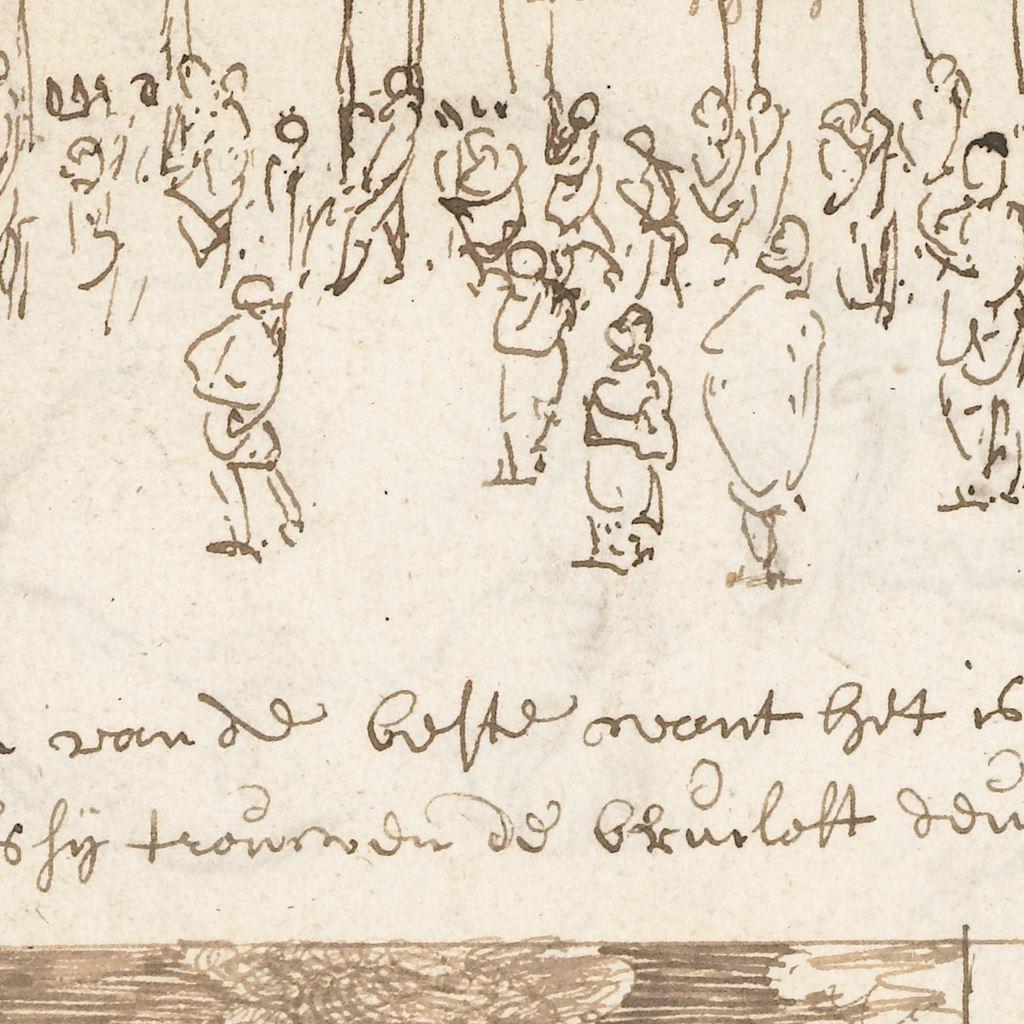 van de beste want het is
hij trouwen de bruiloft deu